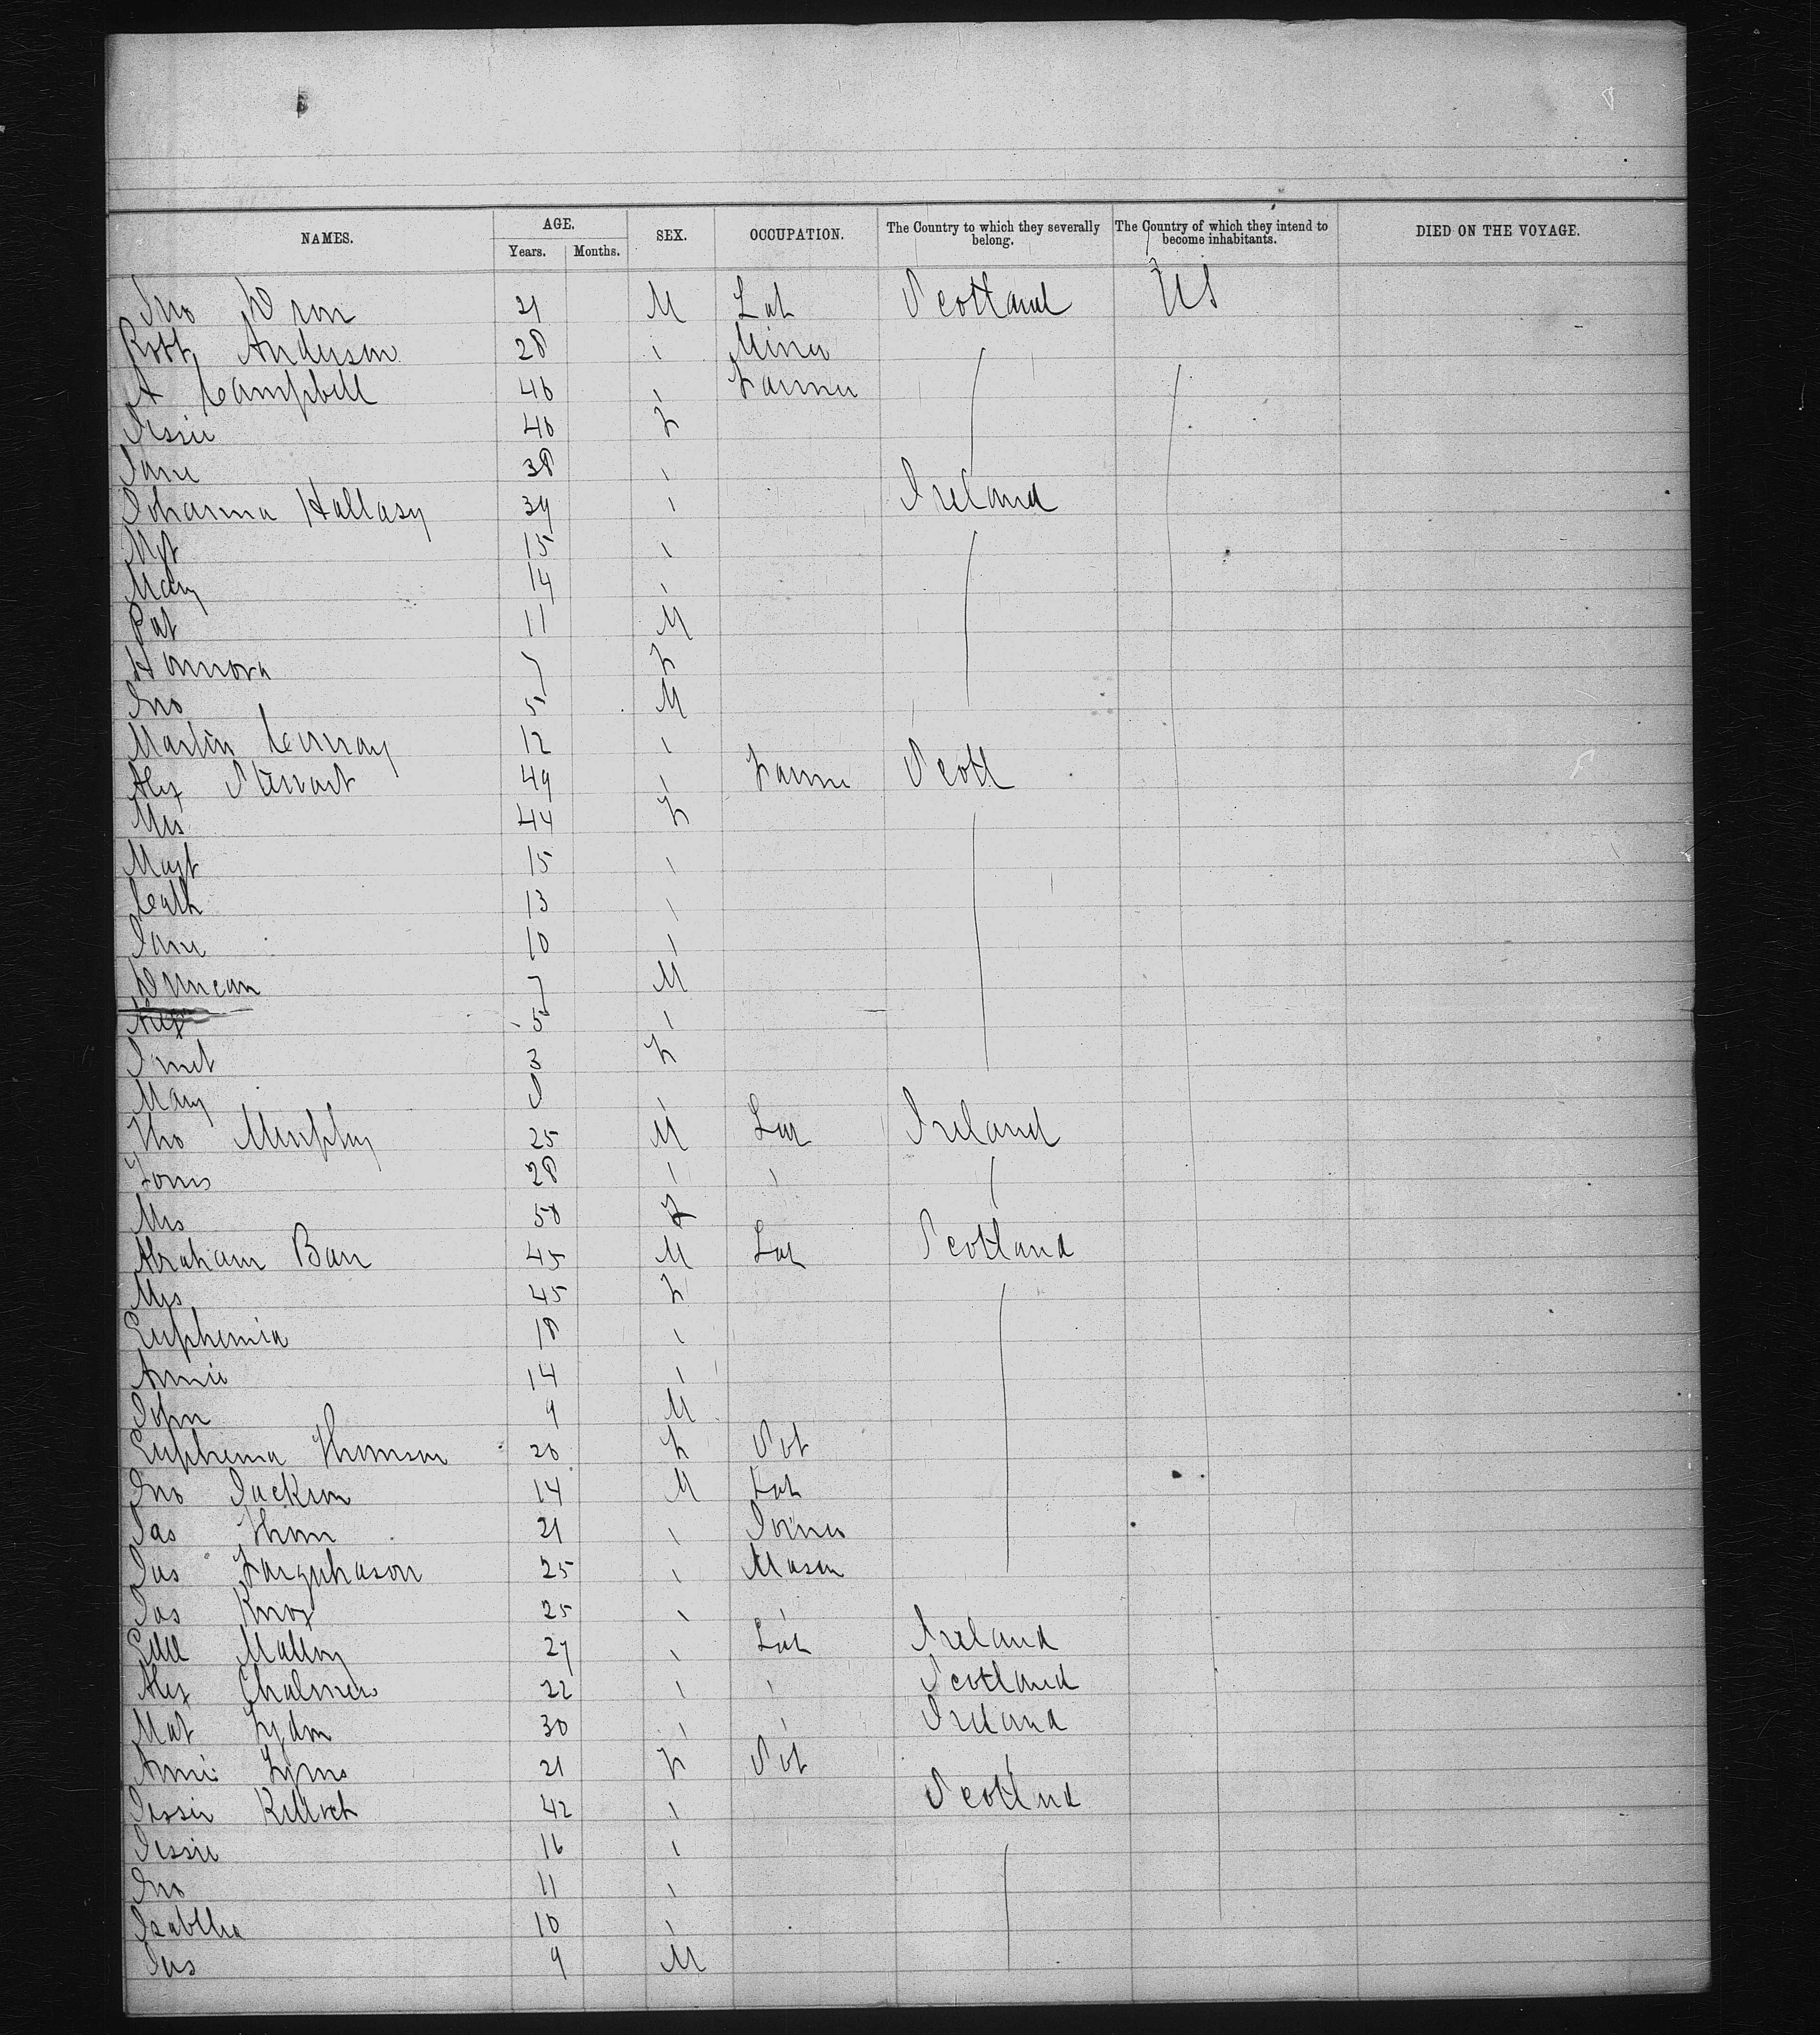 NAMES. AGE. Years. Months. SEX. OCCUPATION. The Country to which they severally belong. The Country of which they intend to become inhabitants. DIED ON THE VOYAGE.
Jno Dron 21 M Lab Scotland US
Robt Anderson 28 " Miner
A Campbell 40 " Farmer
Jessie 40 F
Jane 38 "
Johanna Hallasy 34 " Ireland
Mgt 15 "
Mary 14 "
Pat 11 M
Hannora 7 F
Jno 5 M
Martin Conray 12 "
Alex Stewart 49 " Farme Scotl
Mrs 44 F
Magt 15 "
Cath 13 "
Jane 10 "
Duncan 7 M
Alex 5 "
Jnet 3 F
Mary "
Tho Murphy 25 M Lab Ireland
28 " "
Mrs 50 F
Abraham Barr 45 M Lab Scotland
Mrs 45 F
Euphemia 18 "
Annie 14 "
John 9 M
Euphema Thomson 20 F Svt
Jno Jackson 14 M Lab
Jas Thom 21 " Joiner
Jas Farquhason 25 " Mason
Jas Knox 25 " "
Edd Malloy 27 " Lab Ireland
Alex Chalmers 22 " " Scotland
Mat Lydon 30 " " Ireland
Annie Lyons 21 F Svt "
Jessie Killoch 42 " Scotlnd
Jessie 16 "
Jno 11 "
Isabllia 10 "
Jas 9 M